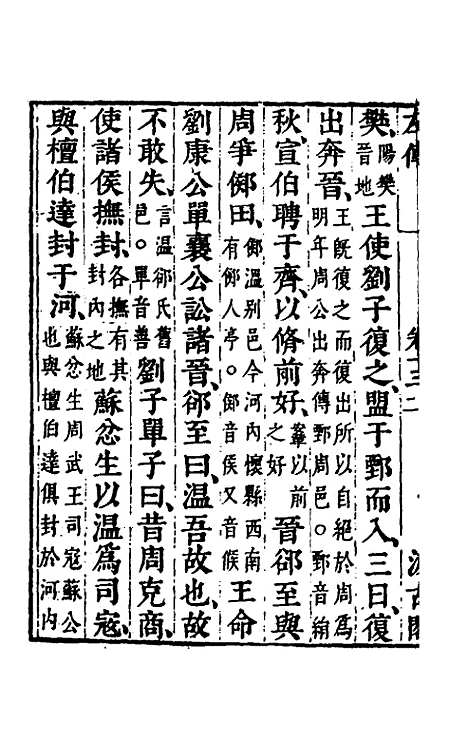 樊陽樊晉地王使劉子復之盟于鄄而入三日復
出奔晉王旣復之而復出所以自絕於周爲明年周公出奔傳鄄周邑○鄄音絹
秋宣伯聘于齊以脩前好鞌以前之好晉郤至與
周爭鄇田鄇溫別邑今河內懷縣西南有鄇人亭○鄇音侯又音候王命
劉康公單襄公訟諸晉郤至曰溫吾故也故
不敢失言溫郤氏舊邑○單音善劉子單子曰昔周克商
使諸侯撫封各撫有其封內之地蘇忿生以溫爲司寇
與檀伯達封于河蘇忿生周武王司寇蘇公也與檀伯達俱封於河內